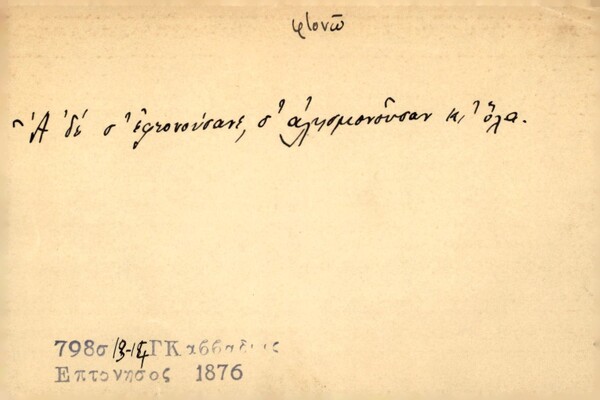 φτονῶ
Ἂ δέ σ' ἐφτονούσανε, σ' ἀλησμονοῦσαν κι' ὅλα.
798σ 13-14 ΓΚαββαδιας
Επτονησος 1876